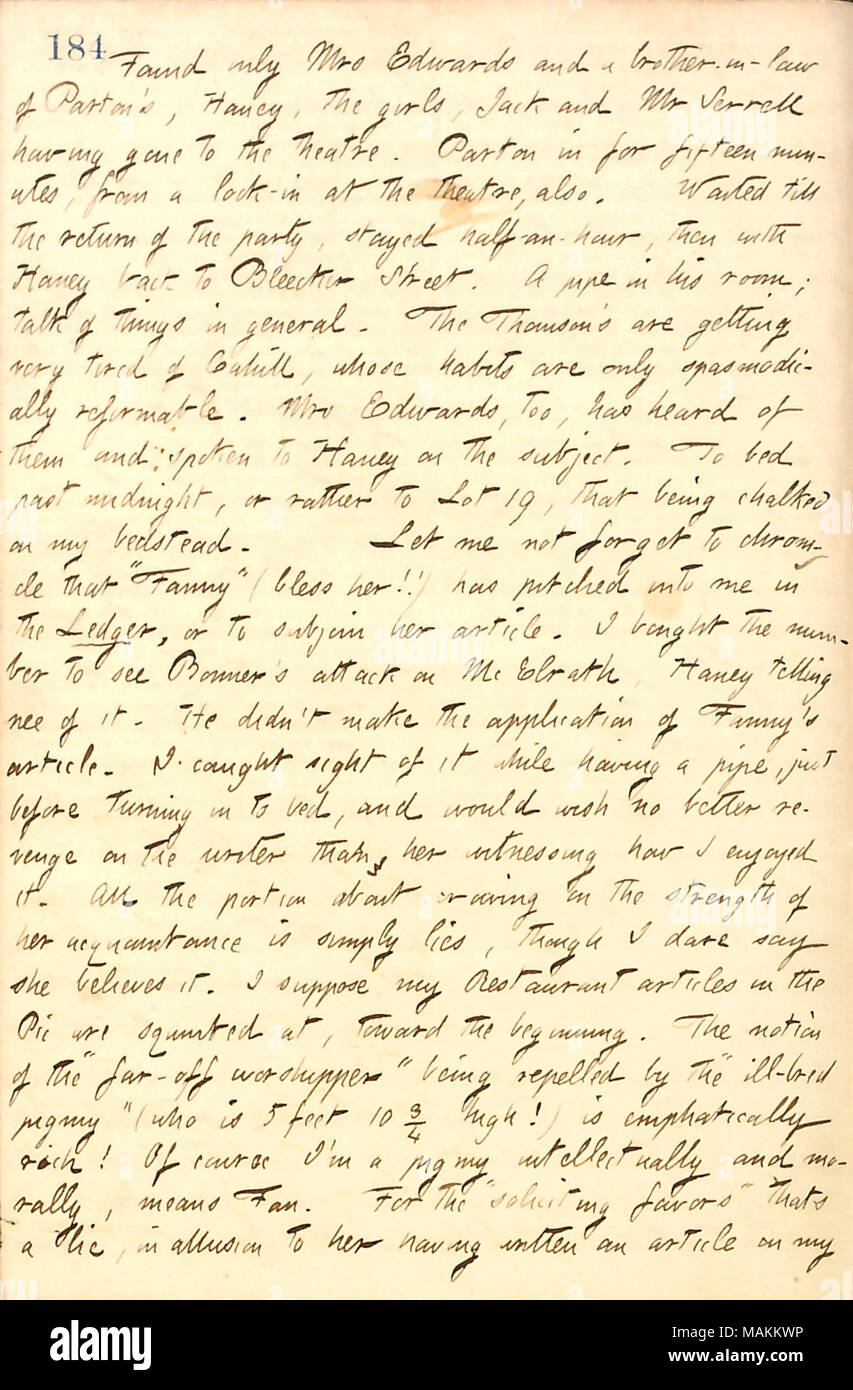 184
Found only Mrs Edwards and a brother-in-law
of Parton's, Haney, the girls, Jack and Mr Serrell
having gone to the theatre. Parton in for fifteen min-
utes, from a look-in at the theatre, also. Waited till
the return of the party, stayed half-an-hour, then with
Haney back to Bleecker Street. A pipe in his room;
talk of things in general. The Thomson's are getting
very tired of Cahill, whose habits are only spasmodic-
ally reformable. Mrs Edwards, too, has heard of
them and spoken to Haney on the subject. To bed
past midnight, or rather to Lot 19, that being chalked
on my bedstead. Let me not forget to chroni-
cle that "Fanny" (bless her!!) has pitched into me in
the Ledger, or to subjoin her article. I bought the num-
ber to see Bonner's attack on McElrath, Haney telling
mee of it. He didn't make the application of Fanny's
article. I caught sight of it while having a pipe, just
before turning in to bed, and would wish no better re-
venge on the writer than her witnessing how I enjoyed
it. All the portion about crowing on the strength of
her acquaintance is simply lies, though I dare say
she believes it. I suppose my Restaurant articles in the
Pic are squinted at, toward the beginning. The notion
of the "far-off worshipper" being repelled by the "ill-bred
pigmy" (who is 5 feet 10 3/4 high!) is emphatically
rich! Of course I'm a pigmy intellectually and mo-
rally, means Fan. For the "soliciting favors" that's
a lie, in allusion to her having written an article on my
alamy
Image ID: MAKKWP
www.alamy.com